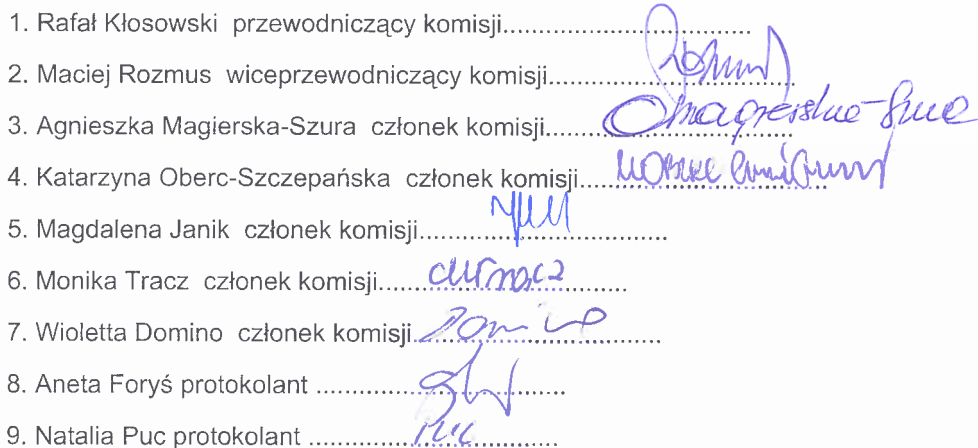 1. Rafał Kłosowski przewodniczący komisji..........................................
2. Maciej Rozmus wiceprzewodniczący komisji..........................................
3. Agnieszka Magierska-Szura członek komisji..........................................
4. Katarzyna Oberc-Szczepańska członek komisji..........................................
5. Magdalena Janik członek komisji..........................................
6. Monika Tracz członek komisji..........................................
7. Wioletta Domino członek komisji..........................................
8. Aneta Foryś protokolant ..........................................
9. Natalia Puc protokolant .......................................... Puc